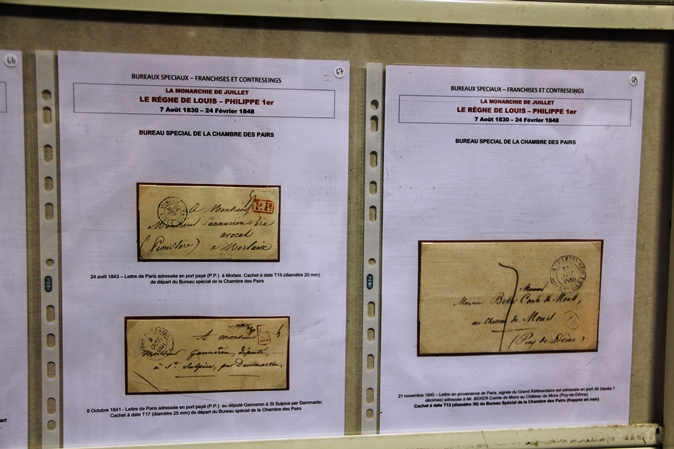 66
67
BUREAUX SPECIAUX – FRANCHISES ET CONTRESEINGS
LA MONARCHIE DE JUILLET
LE RÈGNE DE LOUIS – PHILIPPE 1er
7 Août 1830 – 24 Février 1848
BUREAU SPECIAL DE LA CHAMBRE DES PAIRS
P.P.
A Monsieur
Monsieur
avocat
(Finistere) à Morlaix
24 avril 1843 – Lettre de Paris adressée en port payé (P.P.) à Morlaix. Cachet à date T15 (diamètre 20 mm)
de départ du Bureau spécial de la Chambre des Pairs
A monsieur
Monsieur Ganneron, député,
à St Sulpice, par Dammartin
8 Octobre 1841 – Lettre de Paris adressée en port payé (P.P.) au député Ganneron à St Sulpice par Dammartin.
Cachet à date T17 (diamètre 25 mm) de départ du Bureau spécial de la Chambre des Pairs
BUREAUX SPECIAUX – FRANCHISES ET CONTRESEINGS
LA MONARCHIE DE JUILLET
LE RÈGNE DE LOUIS – PHILIPPE 1er
7 Août 1830 – 24 Février 1848
BUREAU SPECIAL DE LA CHAMBRE DES PAIRS
7
Monsieur
Monsieur Beker Comte de Mont,
au Chateau de Mons
(Puy de Dome)
21 novembre 1840 – Lettre en provenance de Paris, signée du Grand Référendaire est adressée en port dû (taxée 7
décimes) adressée à Mr. BEKER Comte de Mons au Château de Mons (Puy-de-Dôme).
Cachet à date T15 (diamètre 30) du Bureau Spécial de la Chambre des Pairs (frappée en noir)